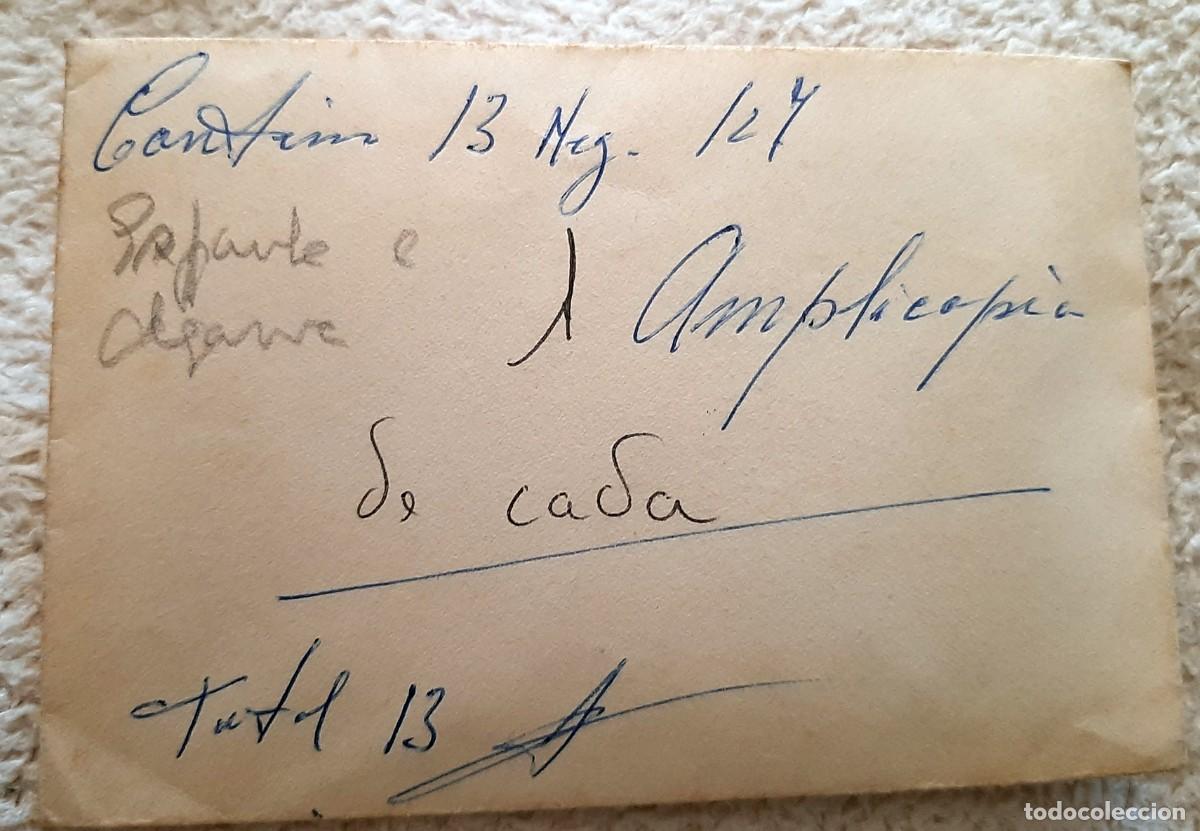 Contém 13 Neg. 127
Espanha e
Algarve
1 Amplicopia
de cada
Total 13
todocoleccion